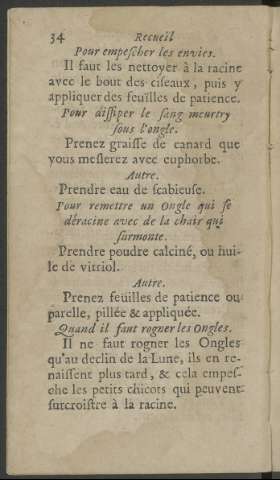 34 Recueil
Pour empeſcher les envies.
Il faut les nettoyer à la racine
avec le bout des ciſeaux, puis y
appliquer des feuïlles de patience.
Pour diſſiper le ſang meurtry
ſous l'ongle.
Prenez graiſſe de canard que
vous meſlerez avec euphorbe.
Autre.
Prendre eau de ſcabieuſe.
Pour remettre un Ongle qui ſe
déracine avec de la chair qui
ſurmonte.
Prendre poudre calciné, ou hui-
le de vitriol.
Autre.
Prenez feüilles de patience ou
parelle, pillée & appliquée.
Quand il faut rogner les Ongles.
Il ne faut rogner les Ongles
qu'au declin de la Lune, ils en re-
naiſſent plus tard, & cela empeſ-
che les petits chicots qui peuvent
ſurcroiſtre à la racine.